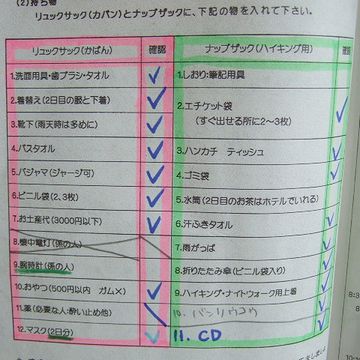 (2)持ち物
リュックサック(カバン)とナップザックに、下記の物を入れて下さい。
リュックサック(かばん) 確認
1.洗面用具・歯ブラシ・タオル
2.着替え(2日目の服と下着)
3.靴下(雨天時は多めに)
4.バスタオル
5.パジャマ(ジャージ可)
6.ビニル袋(2、3枚)
7.お土産代(3000円以下)
8.懐中電灯(係の人)
9.腕時計(係の人)
10.おやつ(500円以内 ガム×)
11.薬(必要な人:酔い止め他)
12.マスク(2日分)
ナップザック(ハイキング用) 確認
1.しおり・筆記用具
2.エチケット袋
(すぐ出せる所に2～3枚)
3.ハンカチ ティッシュ
4.ゴミ袋
5.水筒(2日目のお茶はホテルでいれる)
6.汗ふきタオル
7.雨がっぱ
8.折りたたみ傘(ビニル袋入り)
9.ハイキング・ナイトウォーク用上着
11. CD